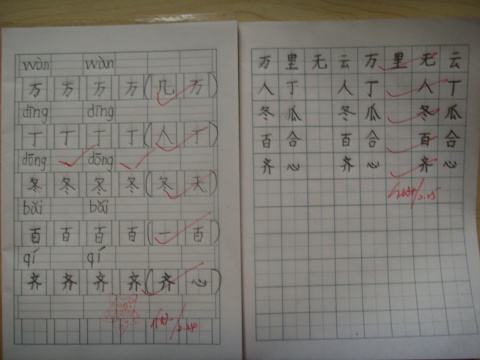 wàn wàn
万 万 万 万 (几 万)
dīng dīng
丁 丁 丁 丁 (人 丁)
dōng dōng
冬 冬 冬 冬 (冬 天)
bǎi bǎi
百 百 百 百 (一 百)
qí qí
齐 齐 齐 齐 (齐 心)
万 里 无 云 万 里 无 云
人 丁 人 丁 人 丁
冬 瓜 冬 瓜 冬 瓜
百 合 百 合 百 合
齐 心 齐 心 齐 心